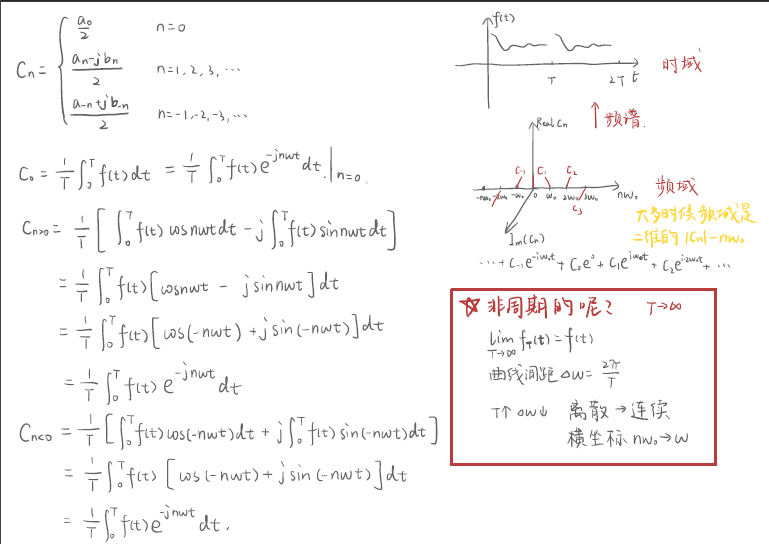 Cn = { a₀/2 n=0
(an-jbn)/2 n=1, 2, 3, ⋯
(a-n+jb-n)/2 n=-1, -2, -3, ⋯
C₀ = 1/T ∫₀ᵀ f(t)dt = 1/T ∫₀ᵀ f(t)e^(-jnwt) dt.|n=0.
Cn>0 = 1/T [∫₀ᵀ f(t) cosnwtdt - j∫₀ᵀ f(t)sinnwtdt]
= 1/T ∫₀ᵀ f(t)[cosnwt - jsinnwt]dt
= 1/T ∫₀ᵀ f(t)[cos(-nwt) + jsin(-nwt)]dt
= 1/T ∫₀ᵀ f(t) e^(-jnwt) dt
Cn<0 = 1/T [∫₀ᵀ f(t)cos(-nwt)dt + j∫₀ᵀ f(t)sin(-nwt)dt]
= 1/T ∫₀ᵀ f(t) [cos(-nwt) + jsin(-nwt)]dt
= 1/T ∫₀ᵀ f(t)e^(-jnwt) dt.
f(t)
T 2T t 时域
↑ 频谱.
Real Cn
C₋₁ C₁ C₂
-nw₀ -2w₀ -w₀ 0 w₀ 2w₀ 3w₀ nw₀ 频域
C₃
Im(Cn)
大多时候频域是
二维的 |Cn|-nw₀
⋯ + C₋₁e^(-iw₀t) + C₀e⁰ + C₁e^(iw₀t) + C₂e^(i2w₀t) + ⋯
☆ 非周期的呢? T→∞
lim T→∞ fT(t) = f(t)
曲线间距 △w = 2π/T
T↑ △w↓ 离散→连续
横坐标 nw₀→w